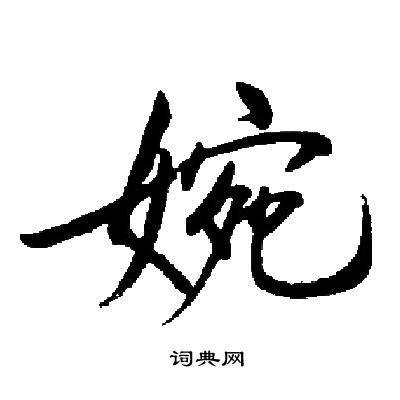 婉
词典网